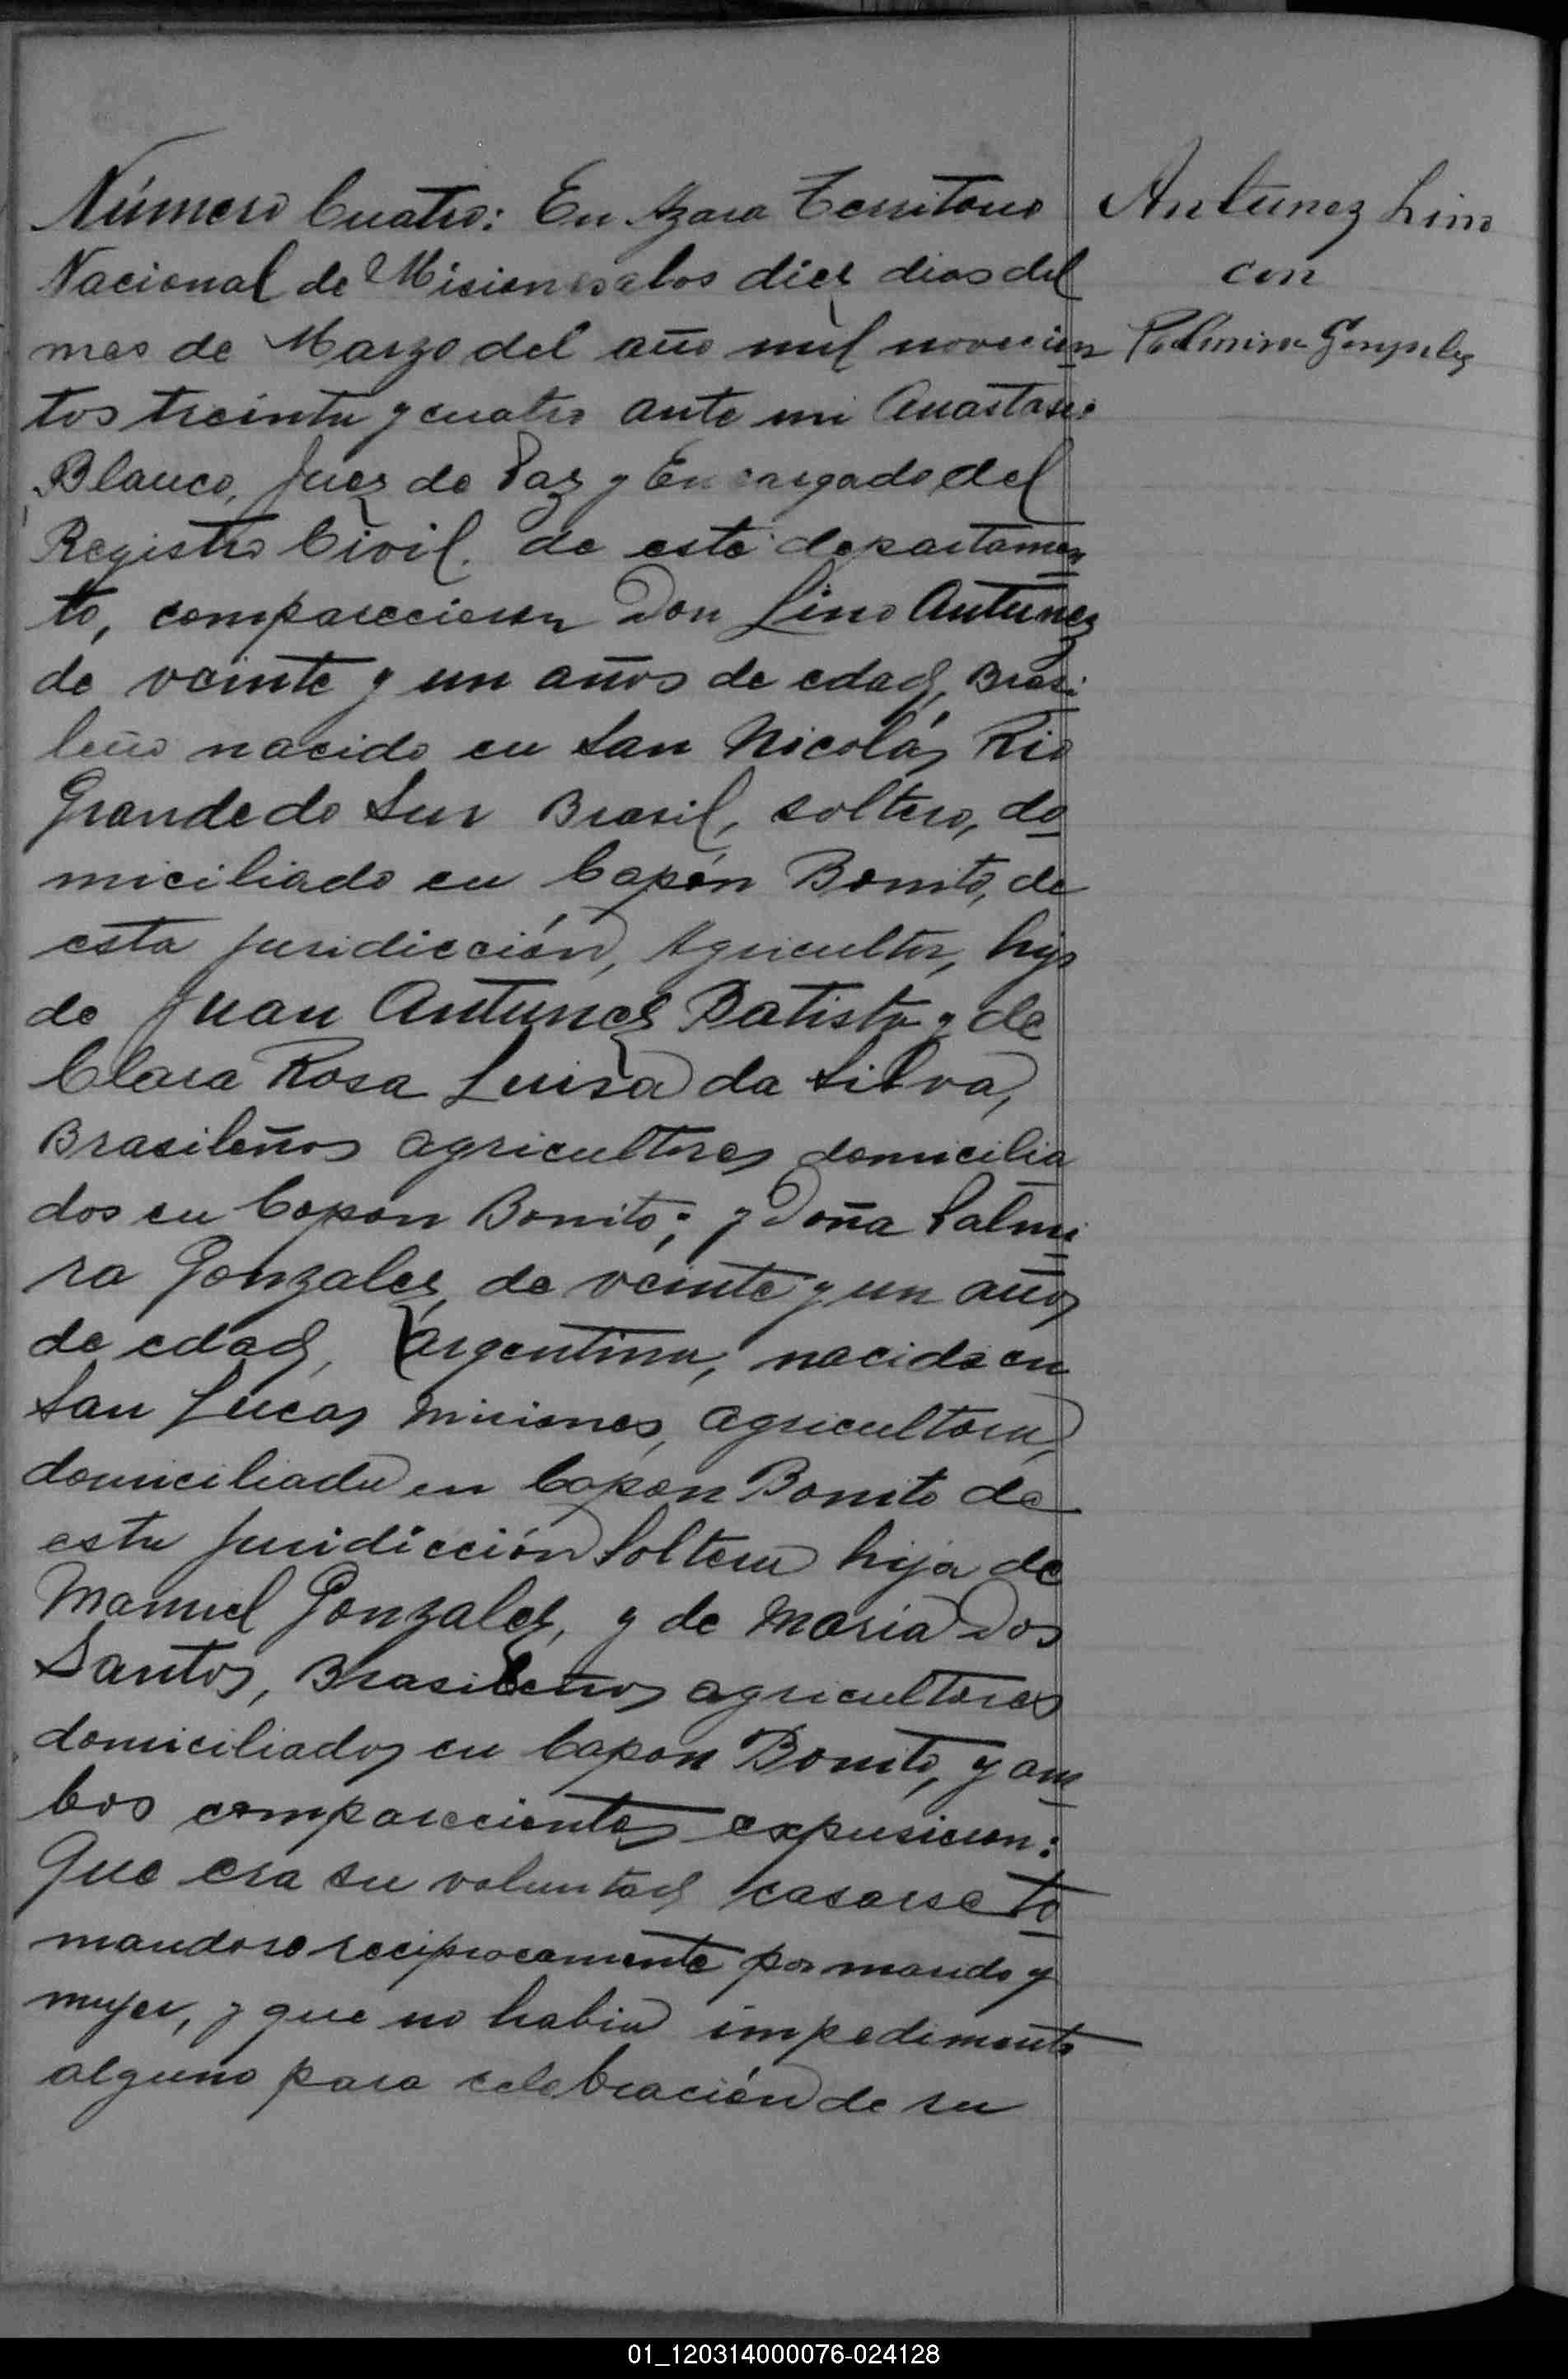 Número Cuatro: En Azara Territorio
Nacional de Misiones a los diez dias del
mes de Marzo del año mil novecien
tos treinta y cuatro ante mi Anastasio
Blanco, Juez de Paz y Encargado del
Registro Civil. de este departamen
to, comparecieron Don Lino Antunez
de veinte y un años de edad, Brasi
leño nacido en San Nicolás Rio
Grande do Sur Brasil, soltero, do
miciliado en Capón Bonito, de
esta juridicción, Agricultor, hijo
de Juan Antunez Batista y de
Clara Rosa Luisa da Silva,
Brasileños agricultores domicilia
dos en Capon Bonito; y Doña Palmi
ra Gonzalez, de veinte y un años
de edad, Argentina, nacida en
San Lucas Misiones, agricultora,
domiciliada en Capon Bonito de
esta juridicción Soltera hija de
Manuel Gonzalez, y de Maria Dos
Santos, Brasileños agricultores
domiciliados en Capon Bonito, y am
bos comparecientes expusieron:
Que era su voluntad casarse to
mandose reciprocamente por marido y
mujer, y que no habia impedimento
alguno para celebración de su
Antunez Lino
con
Palmira Gonzalez
01_120314000076-024128